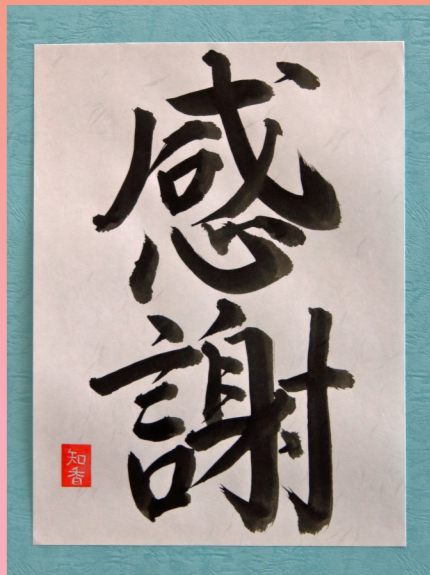 感謝
知香